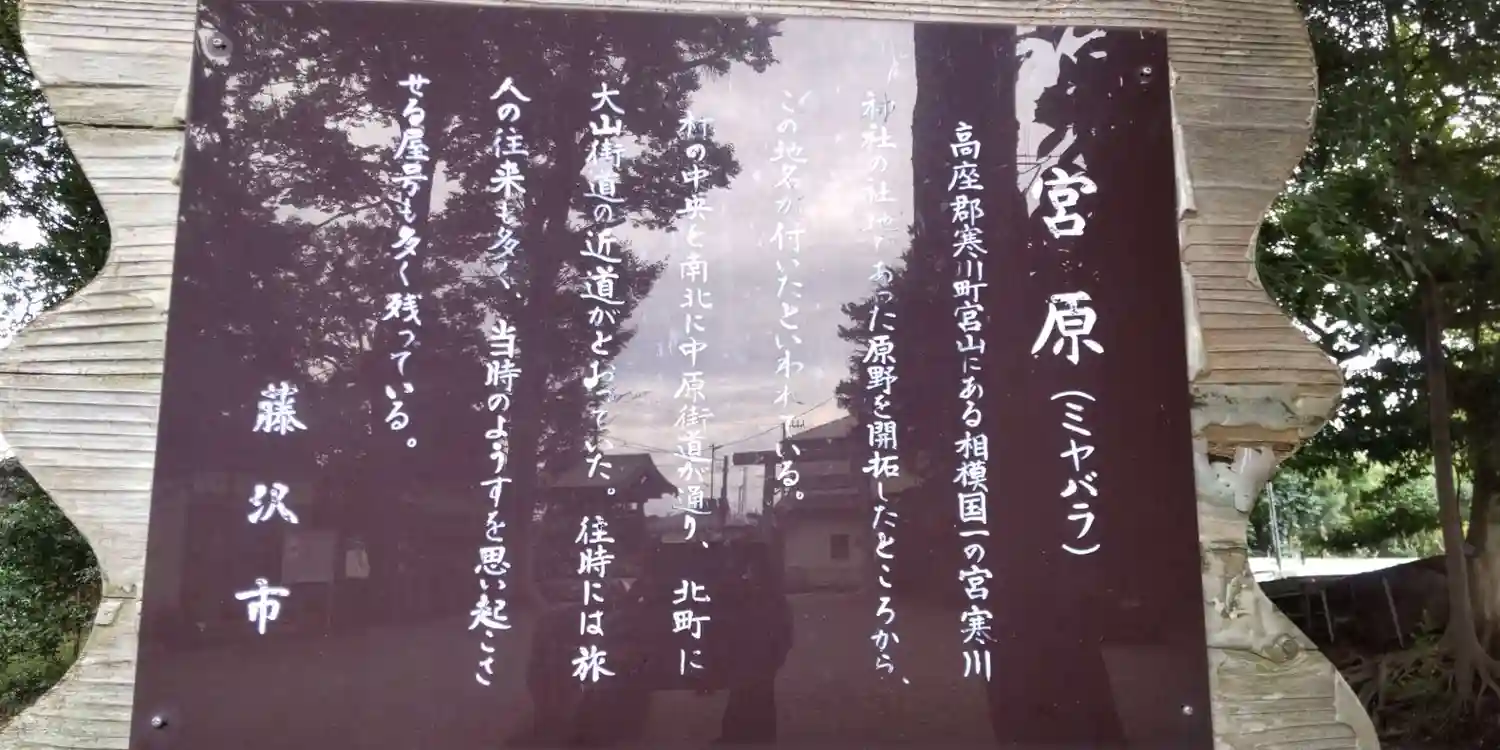 宮原(ミヤバラ)
高座郡寒川町宮山にある相模国一の宮寒川
神社の社地であった原野を開拓したところから、
この地名が付いたといわれている。
村の中央と南北に中原街道が通り、北町に
大山街道の近道がとおっていた。往時には旅
人の往来も多く、当時のようすを思い起こさ
せる屋号も多く残っている。
藤沢市